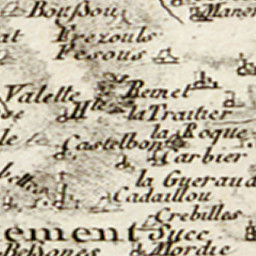 Boußou
Maner
at Frezouls
Pesous
Valelle
Remet
Hte
la Traitier
la Roque
le Castelbon
Carbier
la Gueraud
Cadaillou
Crebilles
ement Succ
Belsones Mordie